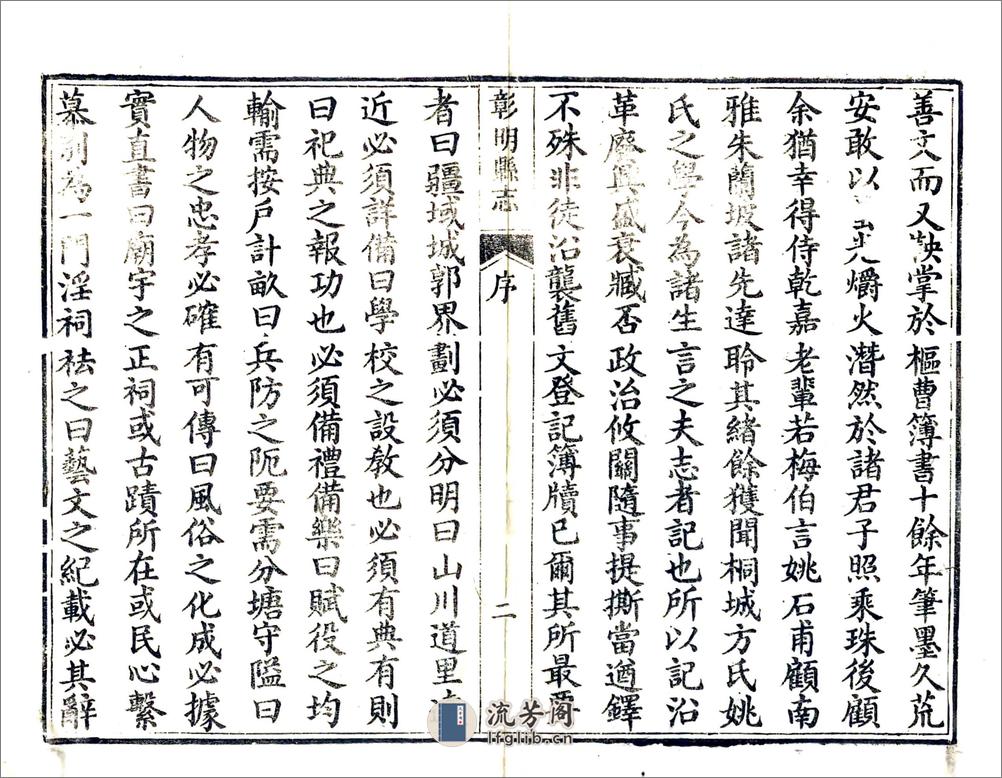 善文而又鞅掌於樞曹簿書十餘年筆墨久荒
安敢以 光爝火潛然於諸君子照乘珠後顧
余猶幸得侍乾嘉老輩若梅伯言姚石甫顧南
雅朱蘭坡諸先達聆其緒餘獲聞桐城方氏姚
氏之學今為諸生言之夫志者記也所以記沿
革廢興盛衰臧否政治攸關隨事提撕當遒鐸
不殊非徒沿襲舊文登記簿牘已爾其所最要
彰明縣志
序
二
者曰疆域城郭界劃必須分明曰山川道里
近必須詳備曰學校之設敎也必須有典有則
曰祀典之報功也必須備禮備樂曰賦役之均
輸需按戶計畝曰兵防之阨要需分塘守隘曰
人物之忠孝必確有可傳曰風俗之化成必據
實直書曰廟宇之正祠或古蹟所在或民心繫
慕別為一門淫祠祛之曰藝文之紀載必其辭
流芳阁
lfglib.cn